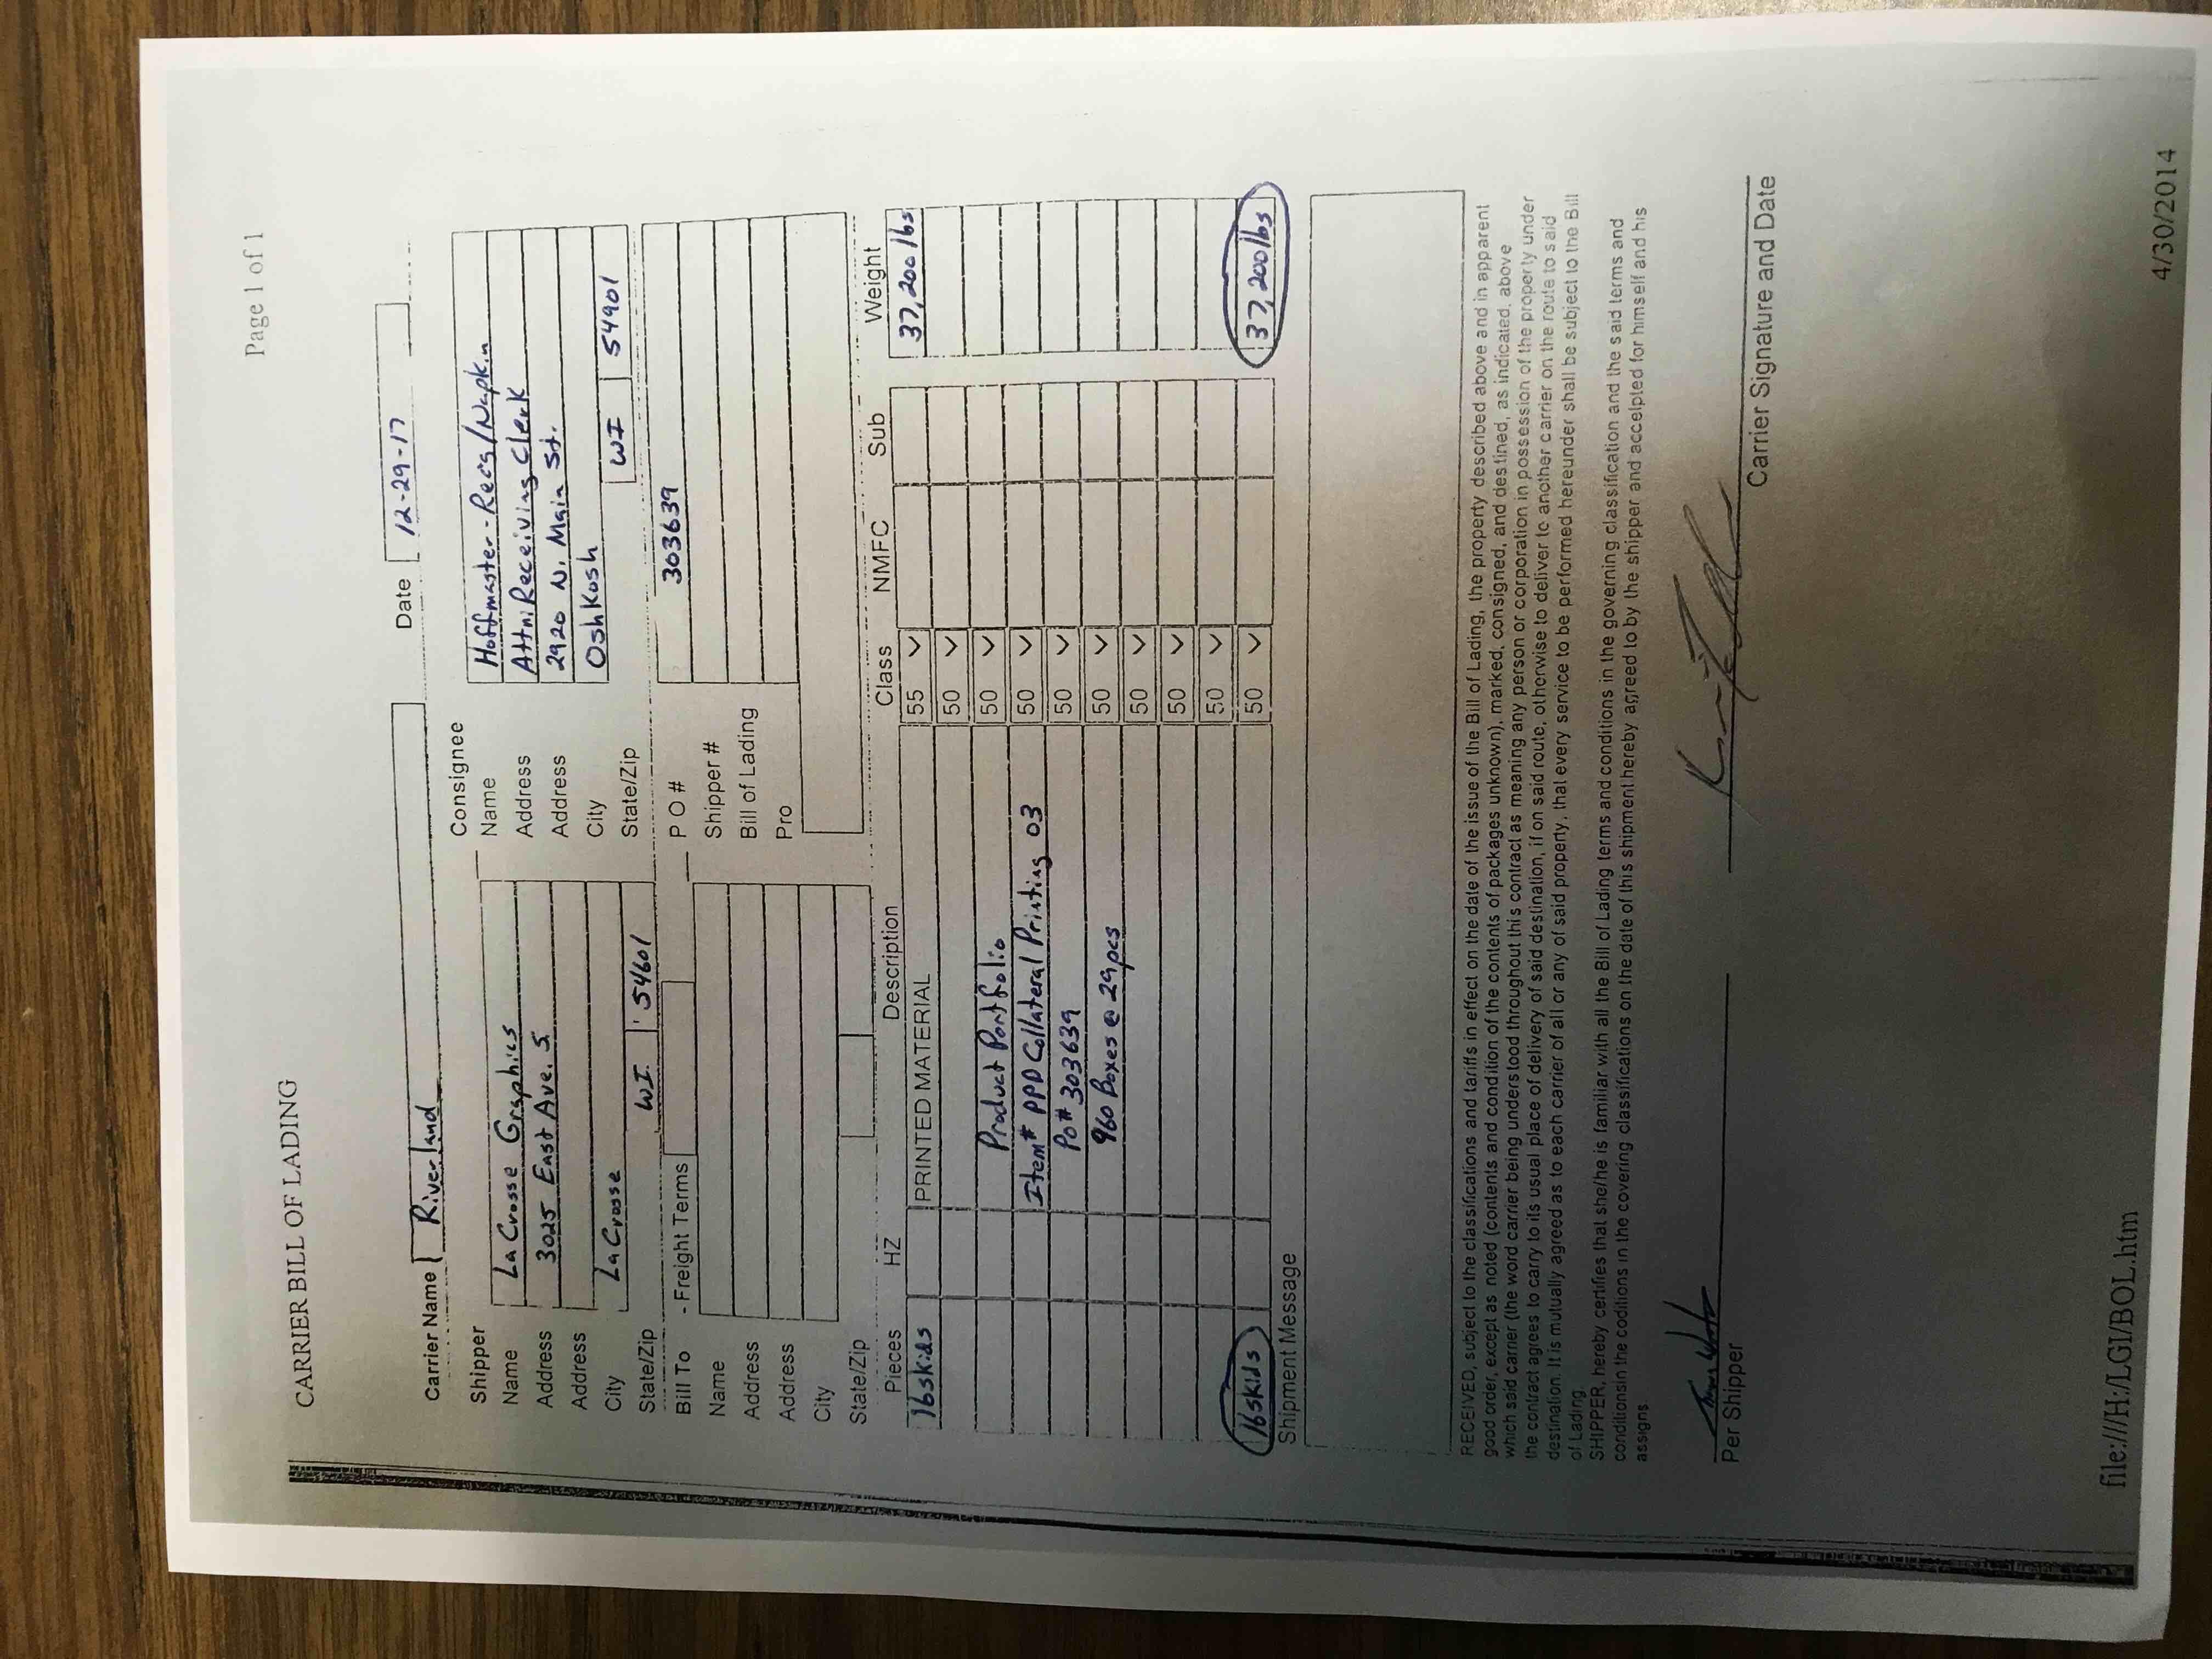 Page 1 of 1
CARRIER BILL OF LADING
Carrier Name Riverland Date 12-29-17
Shipper
Name La Crosse Graphics
Address 3025 East Ave. S.
Address
City La Crosse
State/Zip WI. 54601
Consignee
Name Hoffmaster-Rec's/Napkin
Address Attn: Receiving Clerk
Address 2920 N. Main St.
City Oshkosh
State/Zip WI 54901
Bill To - Freight Terms
Name
Address
Address
City
State/Zip
P O # 303639
Shipper #
Bill of Lading
Pro
Pieces HZ Description Class NMFC Sub Weight
16skids PRINTED MATERIAL 55 37,200 lbs
50
Product Portfolio 50
Item# PPD Collateral Printing 03 50
Po# 303639 50
960 Boxes @ 29pcs 50
50
50
50
16skids 50 37,200 lbs
Shipment Message
RECEIVED, subject to the classifications and tariffs in effect on the date of the issue of the Bill of Lading, the property described above and in apparent
good order, except as noted (contents and condition of the contents of packages unknown), marked, consigned, and destined, as indicated, above
which said carrier (the word carrier being understood throughout this contract as meaning any person or corporation in possession of the property under
the contract agrees to carry to its usual place of delivery of said destination, if on said route, otherwise to deliver to another carrier on the route to said
destination. It is mutually agreed as to each carrier of all or any of said property, that every service to be performed hereunder shall be subject to the Bill
of Lading.
SHIPPER, hereby certifies that she/he is familiar with all the Bill of Lading terms and conditions in the governing classification and the said terms and
conditionsin the coditions in the covering classifications on the date of this shipment hereby agreed to by the shipper and accelpted for himself and his
assigns
Per Shipper Carrier Signature and Date
file:///H:/LGI/BOL.htm 4/30/2014